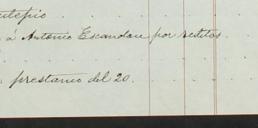 á Antonio Escandon por reditos.
prestamo del 20.